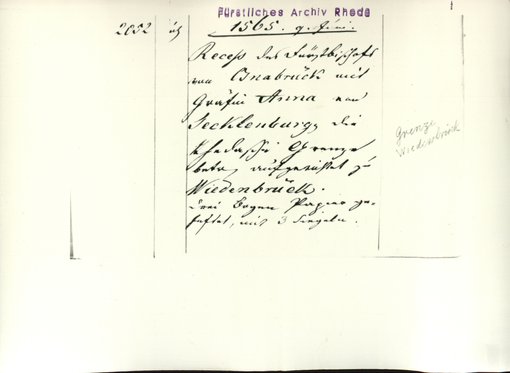 Fürstliches Archiv Rheda
2052
1565. 9. Juni.
Recess des Fürstbischofs
von Osnabrück mit
Gräfin Anna von
Tecklenburg, die
Rhedasche Grenze
betr. aufgerichtet zu
Wiedenbrück.
drei Bogen Papier ge-
heftet, mit 3 Siegeln.
Grenze
Wiedenbrück